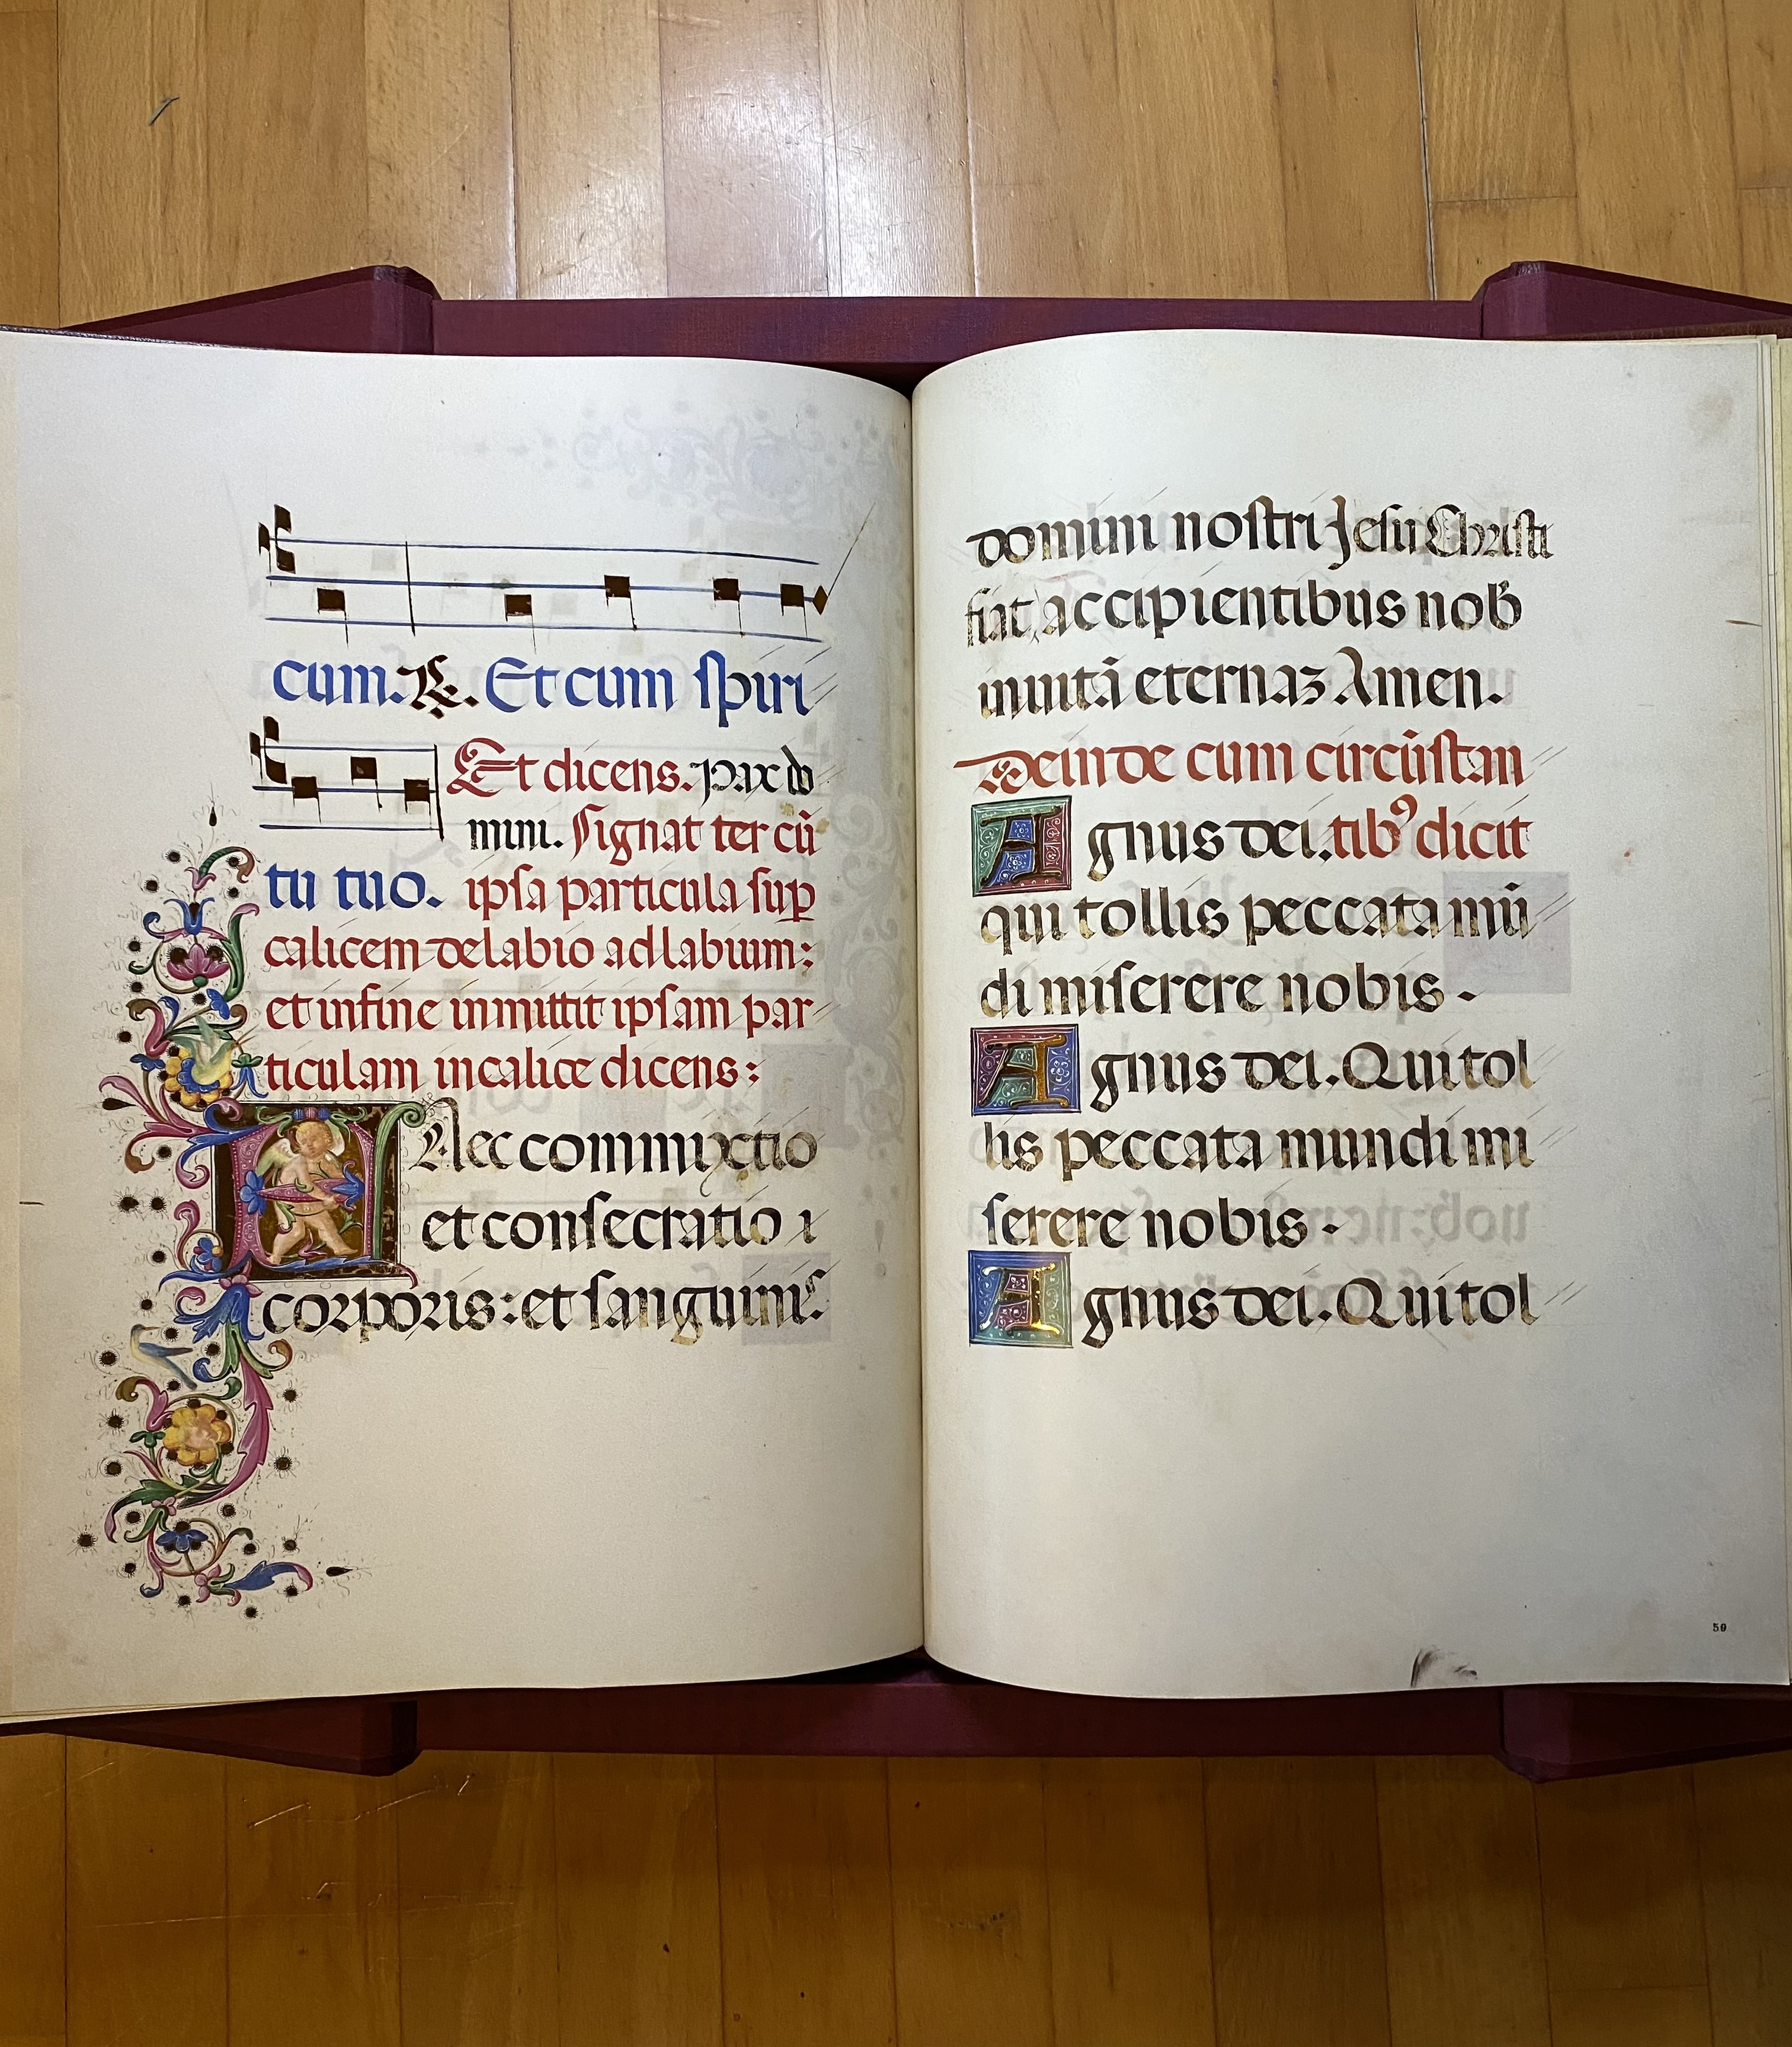 cum. ℟. Et cum spiri
Et dicens. Pax do
mini. Signat ter cū
tu tuo. ipsa particula sup
calicem de labio ad labium:
et in fine inmittit ipsam par
ticulam in calice dicens:
Haec commixtio
et consecratio
corporis: et sanguinis
domini nostri Jesu Christi
fiat accipientibus nob
in uitā eternaꝫ Amen.
Deinde cum circūstan
Agnus dei. tibꝰ dicit
qui tollis peccata mū
di miserere nobis.
Agnus dei. Qui tol
lis peccata mundi mi
serere nobis.
Agnus dei. Qui tol
50